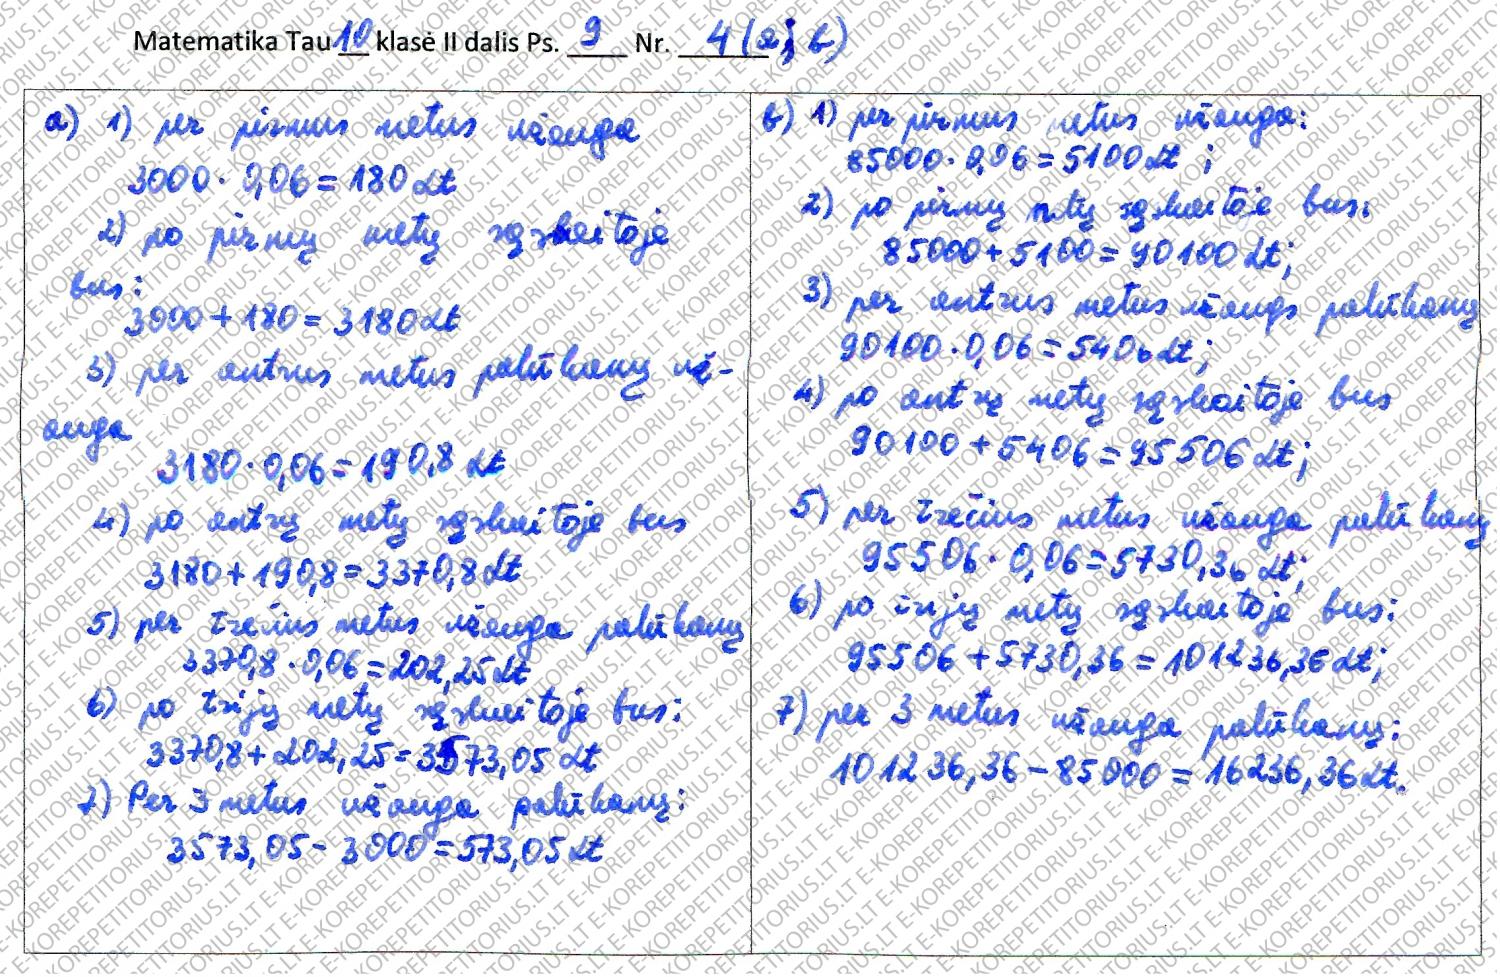 Matematika Tau 10 klasė II dalis Ps. 9 Nr. 4 (a; b)
a) 1) per pirmus metus užauga
3000 · 0,06 = 180 Lt
2) po pirmų metų sąskaitoje
bus:
3000 + 180 = 3180 Lt
3) per antrus metus palūkanų už-
auga
3180 · 0,06 = 190,8 Lt
4) po antrų metų sąskaitoje bus
3180 + 190,8 = 3370,8 Lt
5) per trečius metus užauga palūkanų
3370,8 · 0,06 = 202,25 Lt
6) po trijų metų sąskaitoje bus:
3370,8 + 202,25 = 3573,05 Lt
7) Per 3 metus užauga palūkanų:
3573,05 - 3000 = 573,05 Lt
b) 1) per pirmus metus užauga:
85000 · 0,06 = 5100 Lt ;
2) po pirmų metų sąskaitoje bus:
85000 + 5100 = 90100 Lt;
3) per antrus metus užaugs palūkanų
90100 · 0,06 = 5406 Lt;
4) po antrų metų sąskaitoje bus
90100 + 5406 = 95506 Lt;
5) per trečius metus užauga palūkanų
95506 · 0,06 = 5730,36 Lt;
6) po trijų metų sąskaitoje bus:
95506 + 5730,36 = 101236,36 Lt;
7) per 3 metus užauga palūkanų:
101236,36 - 85000 = 16236,36 Lt.
E-KOREPETITORIUS.LT